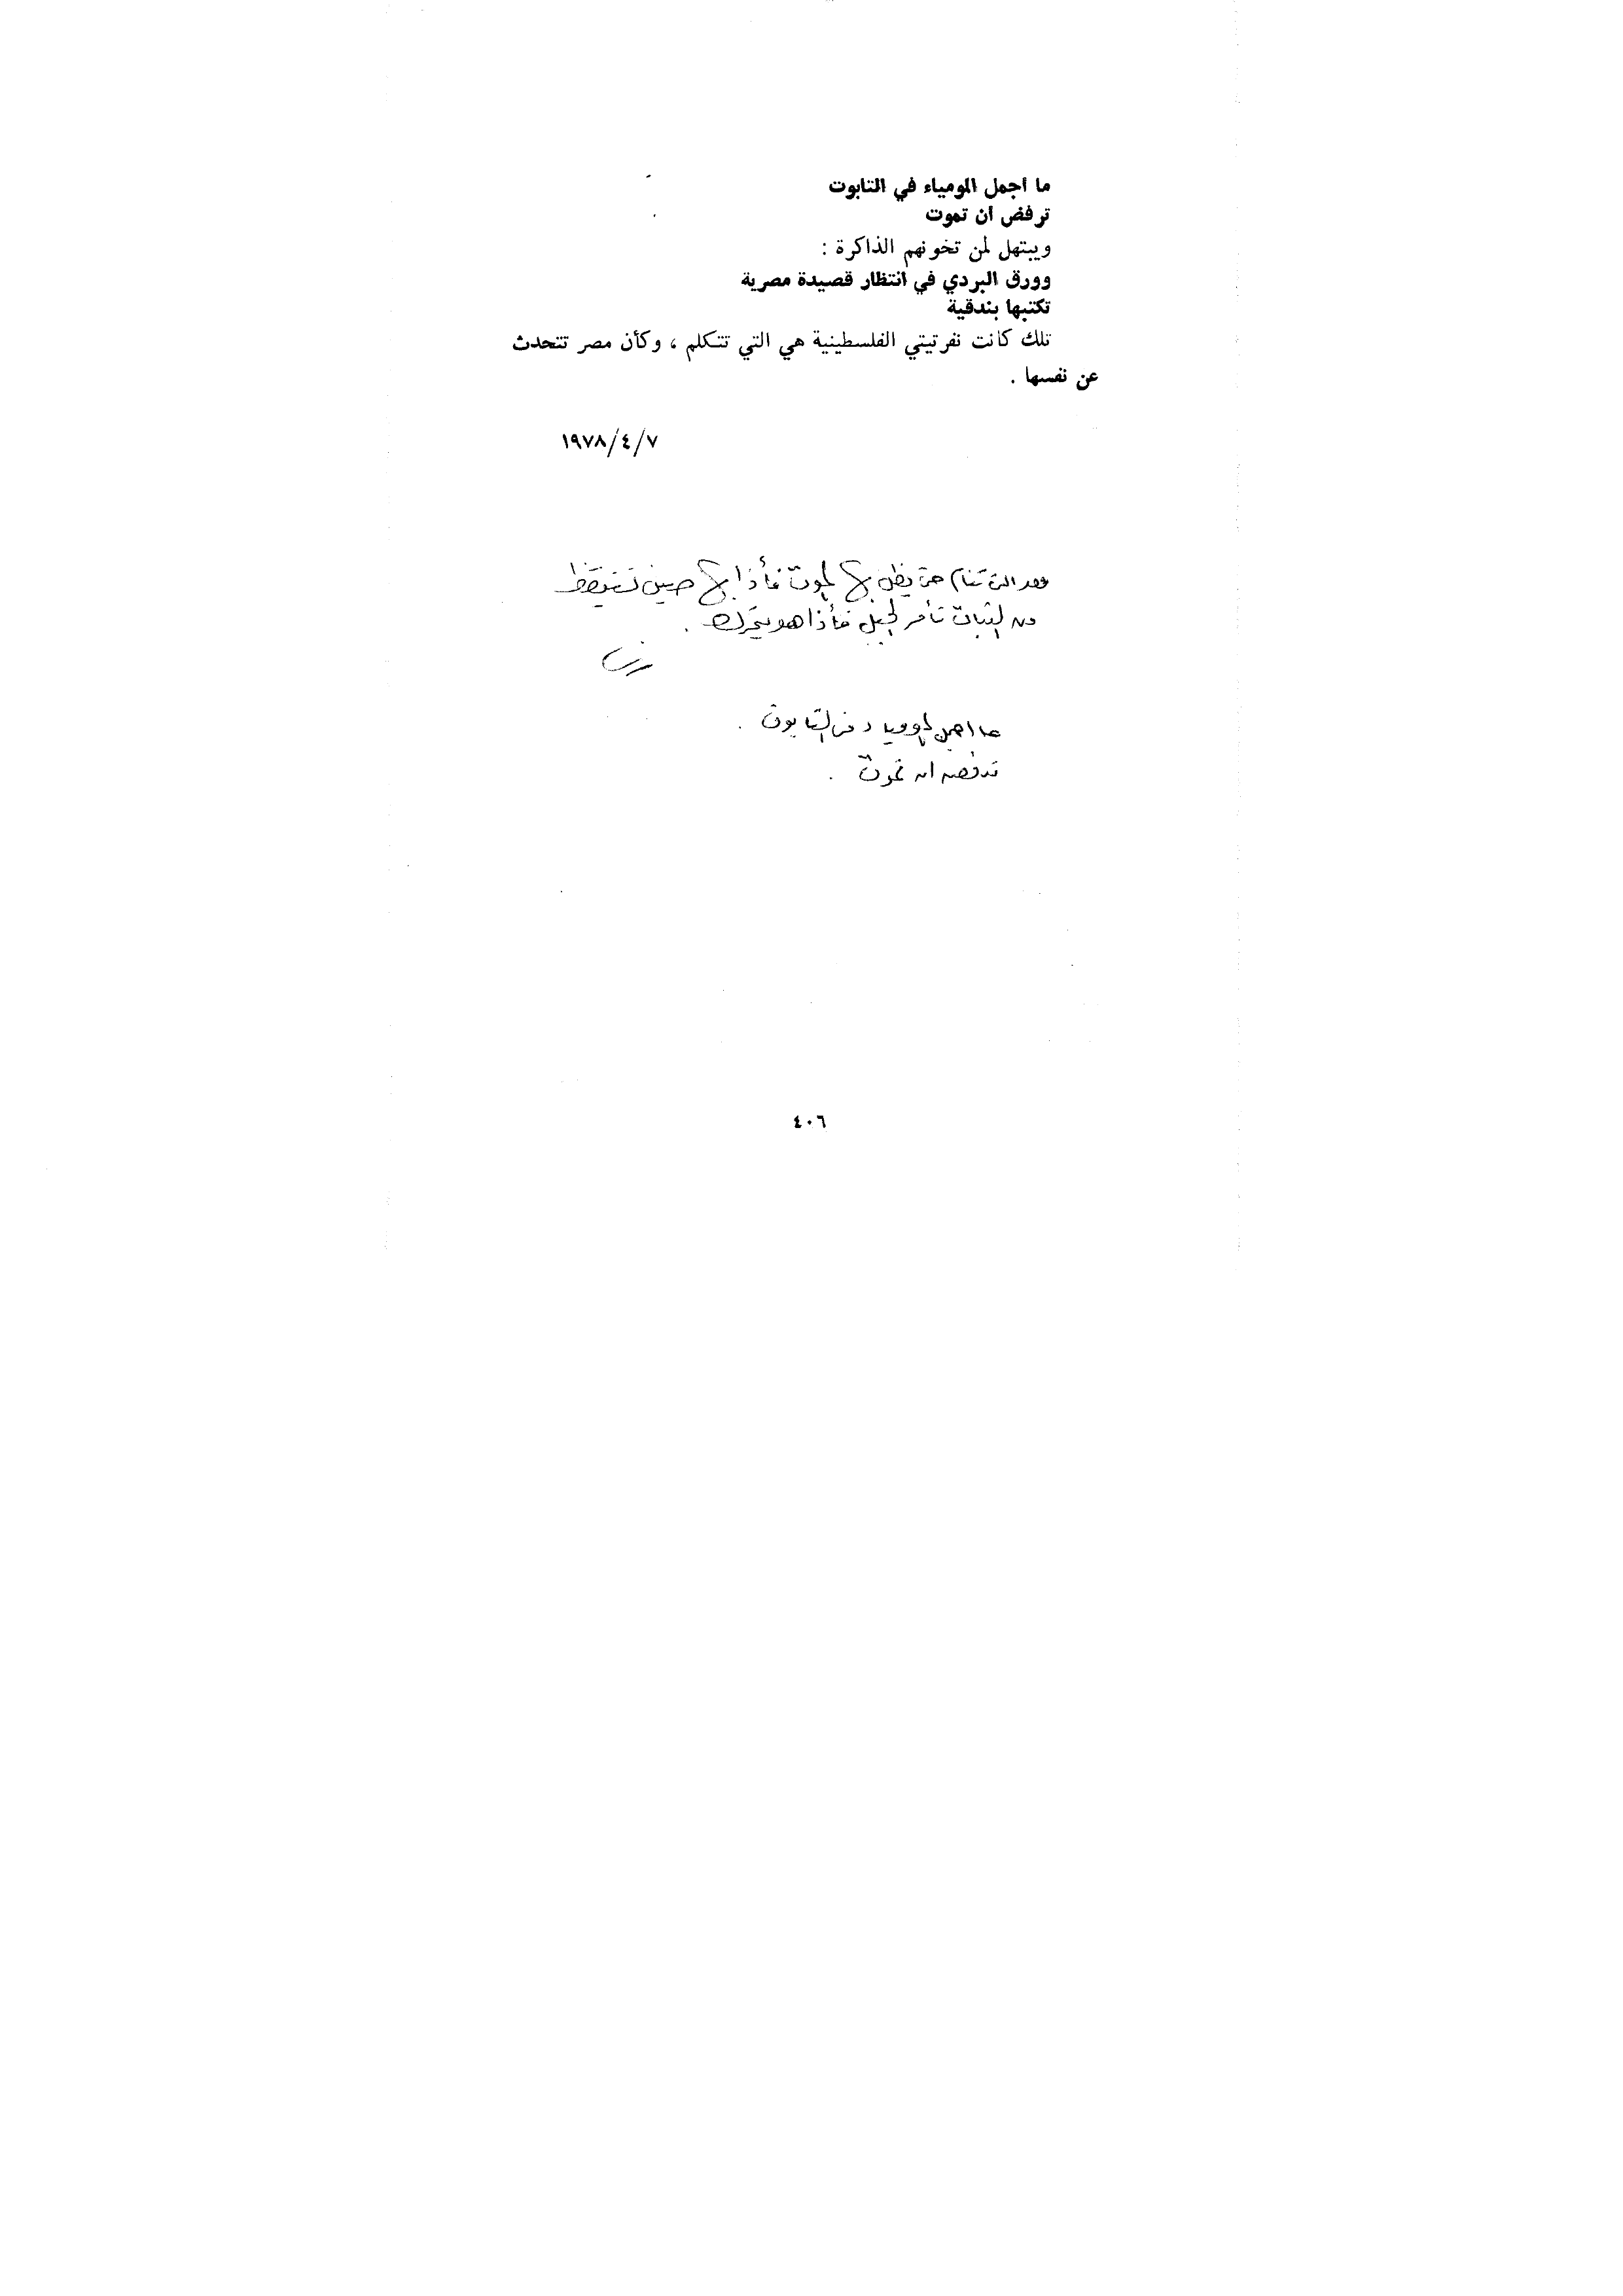 ما اجمل المومياء في التابوت
ترفض ان تموت
ويبتهل لمن تخونهم الذاكرة :
وورق البردي في انتظار قصيدة مصرية
تكتبها بندقية
تلك كانت نفرتيتي الفلسطينية هي التي تتكلم ، وكأن مصر تتحدث
عن نفسها .
١٩٧٨/٤/٧
التي تنام حتى يظن بها الموت فأذا بها حين تستيقظ
من الثبات تأمر الجبل فأذا هو يتحرك .
ما اجمل المومياء في التابوت .
ترفض ان تموت .
٤٠٦